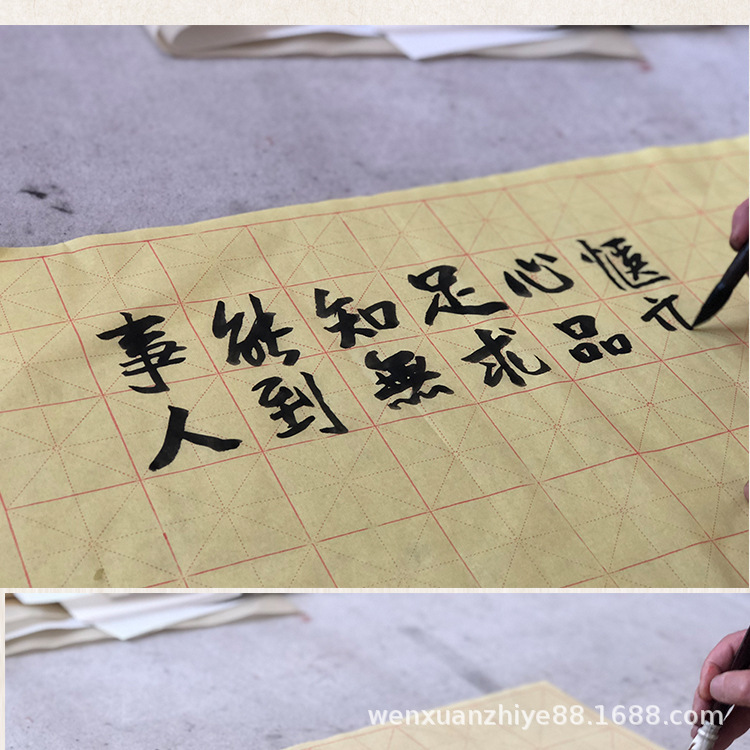 事能知足心愜
人到無求品
wenxuanzhiye88.1688.com